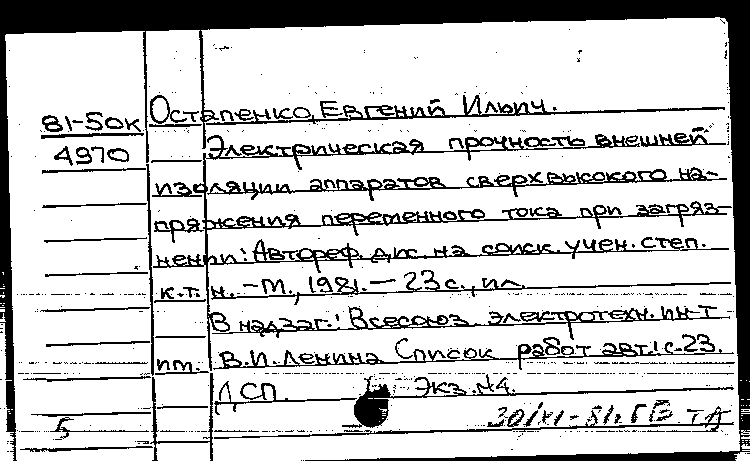 81-50к Остапенко, Евгений Ильич.
4970 Электрическая прочность внешней
изоляции аппаратов сверхвысокого на-
пряжения переменного тока при загряз-
нении: Автореф. дис. на соиск. учен. степ.
к.т.н. – М., 1981. – 23 с., ил.
В надзаг.: Всесоюз. электротехн. ин-т
им. В.И. Ленина Список работ авт.: с. 23.
ДСП. Экз. №4.
5 30/XI-81г. ГБ